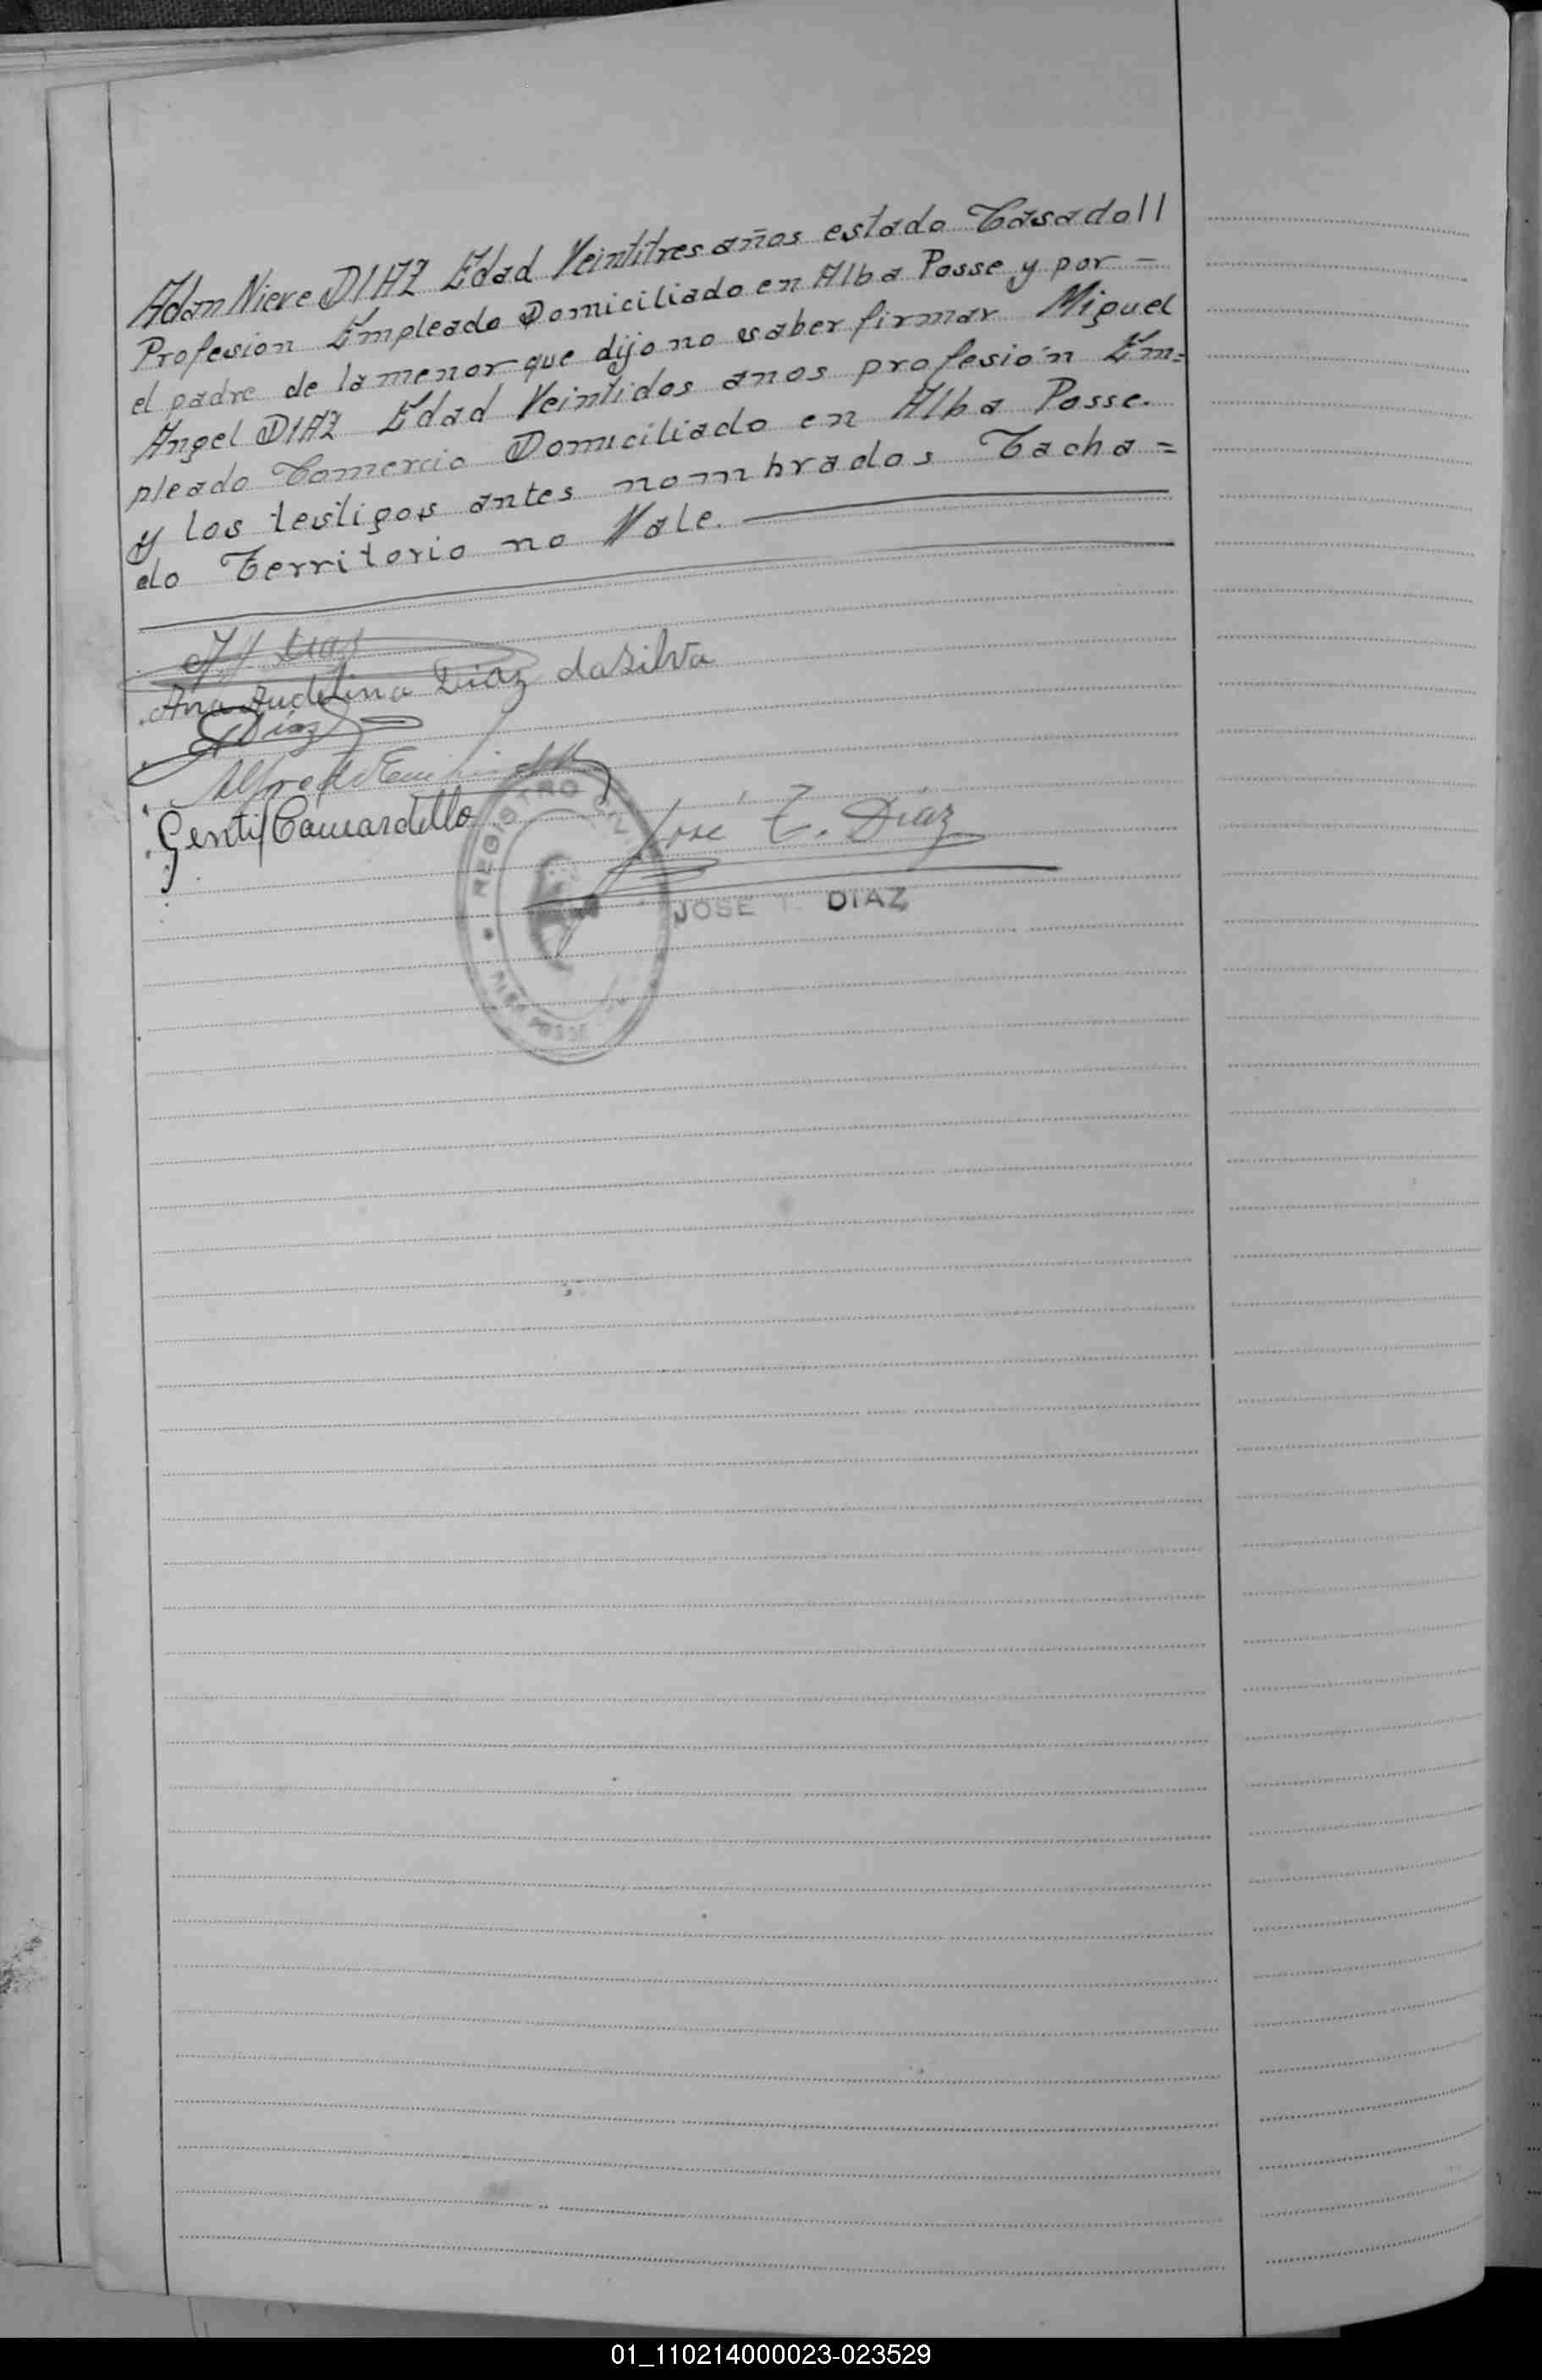 Adan Nieve DIAZ Edad Veintitres años estado Casado||
Profesion Empleado Domiciliado en Alba Posse y por -
el padre de la menor que dijo no saber firmar Miguel
Angel DIAZ Edad Veintidos anos profesión Em=
pleado Comercio Domiciliado en Alba Posse.
y los testigos antes nombrados Tacha =
do Territorio no Vale.
Diaz
Ana Diaz da Silva
Diaz
Alfredo
Gentil Camardello
José T. Díaz
JOSE T. DIAZ
REGISTRO
ALBA POSSE
01_110214000023-023529